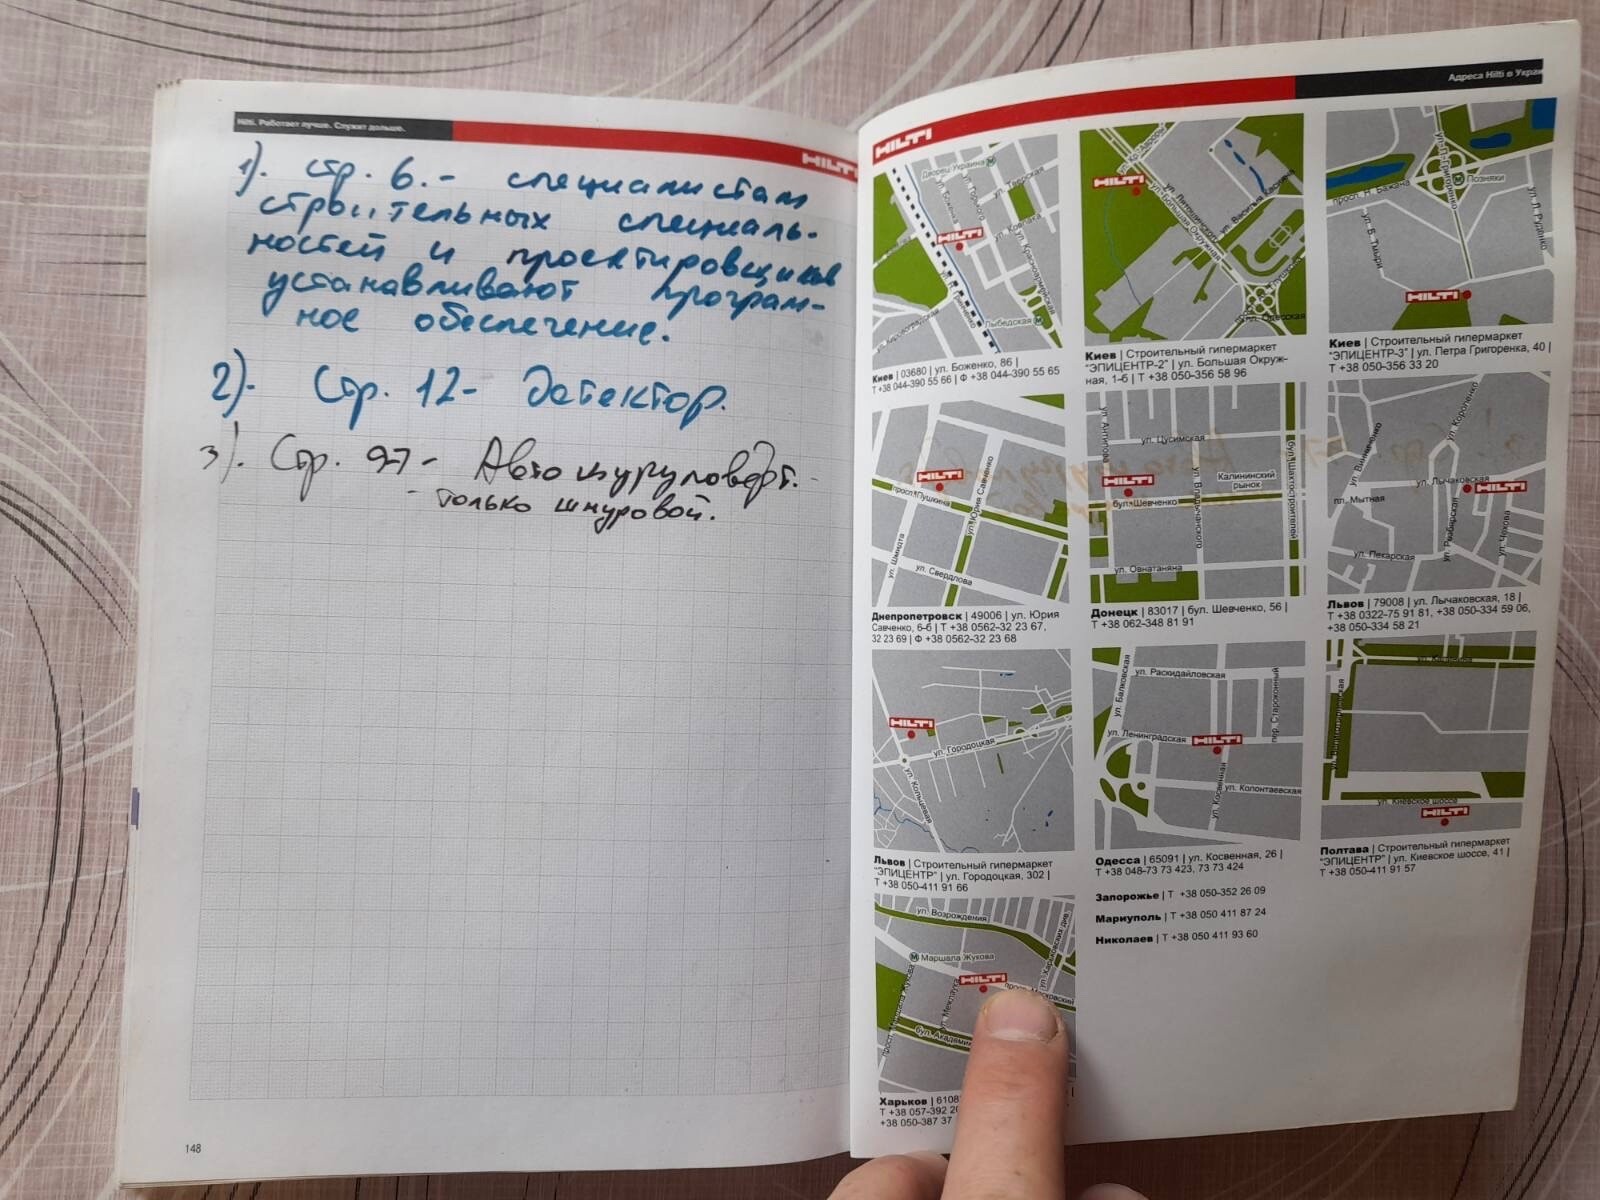 Hilti. Работает лучше. Служит дольше.
HILTI
1). стр. 6. - специалистам
строительных специаль-
ностей и проектировщиков
устанавливают програм-
ное обеспечение.
2). Стр. 12 - детектор.
3). Стр. 97 - Автошуруповерт. -
- только шнуровой.
148
Адреса Hilti в Укра
HILTI
Дворец Украина
ул. Тверская
ул. Боженко
ул. Горького
HILTI
ул. Красноармейская
Лыбедская
Киев | 03680 | ул. Боженко, 86 |
Т +38 044-390 55 66 | Ф +38 044-390 55 65
HILTI
ул. Большая Окружная
ул. Васильковская
Киев | Строительный гипермаркет
"ЭПИЦЕНТР-2" | ул. Большая Окруж-
ная, 1-б | Т +38 050-356 58 96
просп. Н. Бажана
Позняки
ул. Л. Руденко
HILTI
Киев | Строительный гипермаркет
"ЭПИЦЕНТР-3" | ул. Петра Григоренка, 40 |
Т +38 050-356 33 20
HILTI
просп. Пушкина
ул. Юрия Савченко
ул. Шмидта
ул. Свердлова
Днепропетровск | 49006 | ул. Юрия
Савченко, 6-б | Т +38 0562-32 23 67,
32 23 69 | Ф +38 0562-32 23 68
ул. Антипова
ул. Цусимская
HILTI
Калининский
рынок
бул. Шевченко
бул. Шахтостроителей
ул. Овнатаняна
Донецк | 83017 | бул. Шевченко, 56 |
Т +38 062-348 81 91
ул. Короленко
ул. Винниченко
ул. Лычаковская
HILTI
пл. Мытная
ул. Чехова
ул. Пекарская
Львов | 79008 | ул. Лычаковская, 18 |
Т +38 0322-75 91 81, +38 050-334 59 06,
+38 050-334 58 21
HILTI
ул. Городоцкая
ул. Кольцевая
Львов | Строительный гипермаркет
"ЭПИЦЕНТР" | ул. Городоцкая, 302 |
Т +38 050-411 91 66
ул. Балковская
ул. Раскидайловская
пер. Старокonный
ул. Ленинградская
HILTI
ул. Косвенная
ул. Колонтаевская
Одесса | 65091 | ул. Косвенная, 26 |
Т +38 048-73 73 423, 73 73 424
ул. Киевское шоссе
HILTI
Полтава | Строительный гипермаркет
"ЭПИЦЕНТР" | ул. Киевское шоссе, 41 |
Т +38 050-411 91 57
Запорожье | Т +38 050-352 26 09
Мариуполь | Т +38 050 411 87 24
Николаев | Т +38 050 411 93 60
ул. Возрождения
Маршала Жукова
HILTI
просп. Московский
бул. Академик
Харьков | 6108
Т +38 057-392 20
+38 050-387 37